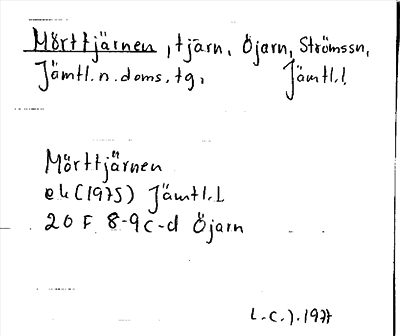 Mörttjärnen, tjärn, Öjarn, Strömssn,
Jämtl. n. doms. tg, Jämtl. l.
Mörttjärnen
ek (1975) Jämtl. L
20 F 8-9 c-d Öjarn
L.C.J. 1977